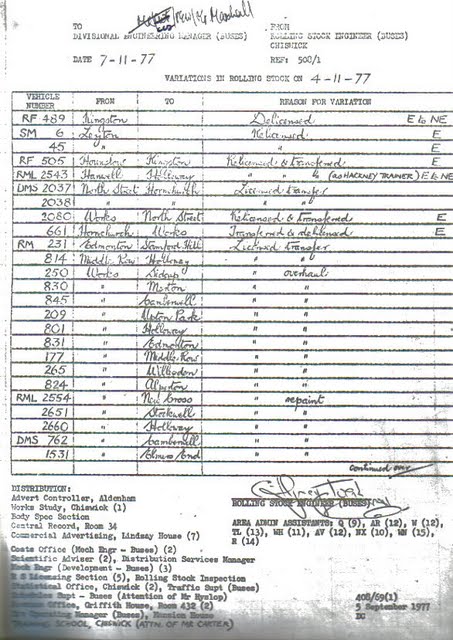 Marshall
TO FROM
DIVISIONAL ENGINEERING MANAGER (BUSES) ROLLING STOCK ENGINEER (BUSES)
CHISWICK
DATE 7-11-77 REF: 500/1
VARIATIONS IN ROLLING STOCK ON 4-11-77
VEHICLE NUMBER FROM TO REASON FOR VARIATION
RF 489 Kingston Delicensed E to NE
SM 6 Leyton Relicensed E
45 " " E
RF 505 Hounslow Kingston Relicensed & transferred E
RML 2543 Hanwell Holloway " " (as HACKNEY TRAINER) E to NE
DMS 2037 North Street Hornchurch Licensed transfer
2038 " " " "
2080 Works North Street Relicensed & transferred E
661 Hornchurch Works Transferred & delicensed E
RM 231 Edmonton Stamford Hill Licensed transfer
814 Middle Row Holloway " "
250 Works Sidcup " overhaul
830 " Merton " "
845 " Camberwell " "
209 " Upton Park " "
801 " Holloway " "
831 " Edmonton " "
177 " Middle Row " "
265 " Willesden " "
824 " Alperton " "
RML 2554 " New Cross " repaint
2651 " Stockwell " "
2660 " Holloway " "
DMS 762 " Camberwell " "
1531 " Elmers End " "
continued over
DISTRIBUTION:
Advert Controller, Aldenham
Works Study, Chiswick (1)
Body Spec Section
Central Record, Room 34
Commercial Advertising, Lindsay House (7)
Costs Office (Mech Engr - Buses) (2)
Scientific Adviser (2), Distribution Services Manager
Mech Engr (Development - Buses) (3)
R S Licensing Section (5), Rolling Stock Inspection
Statistical Office, Chiswick (2), Traffic Supt (Buses)
Schedules Supt - Buses (Attention of Mr Hyslop)
Office, Griffith House, Room 432 (2)
Operating Manager (Buses), Mansion House
TRAINING SCHOOL, CHISWICK (ATTN. OF MR CARTER)
ROLLING STOCK ENGINEER (BUSES)
AREA ADMIN ASSISTANTS: Q (9), AR (12), W (12),
TL (13), WH (11), AV (12), NX (10), WN (15),
R (14)
408/69(1)
5 September 1977